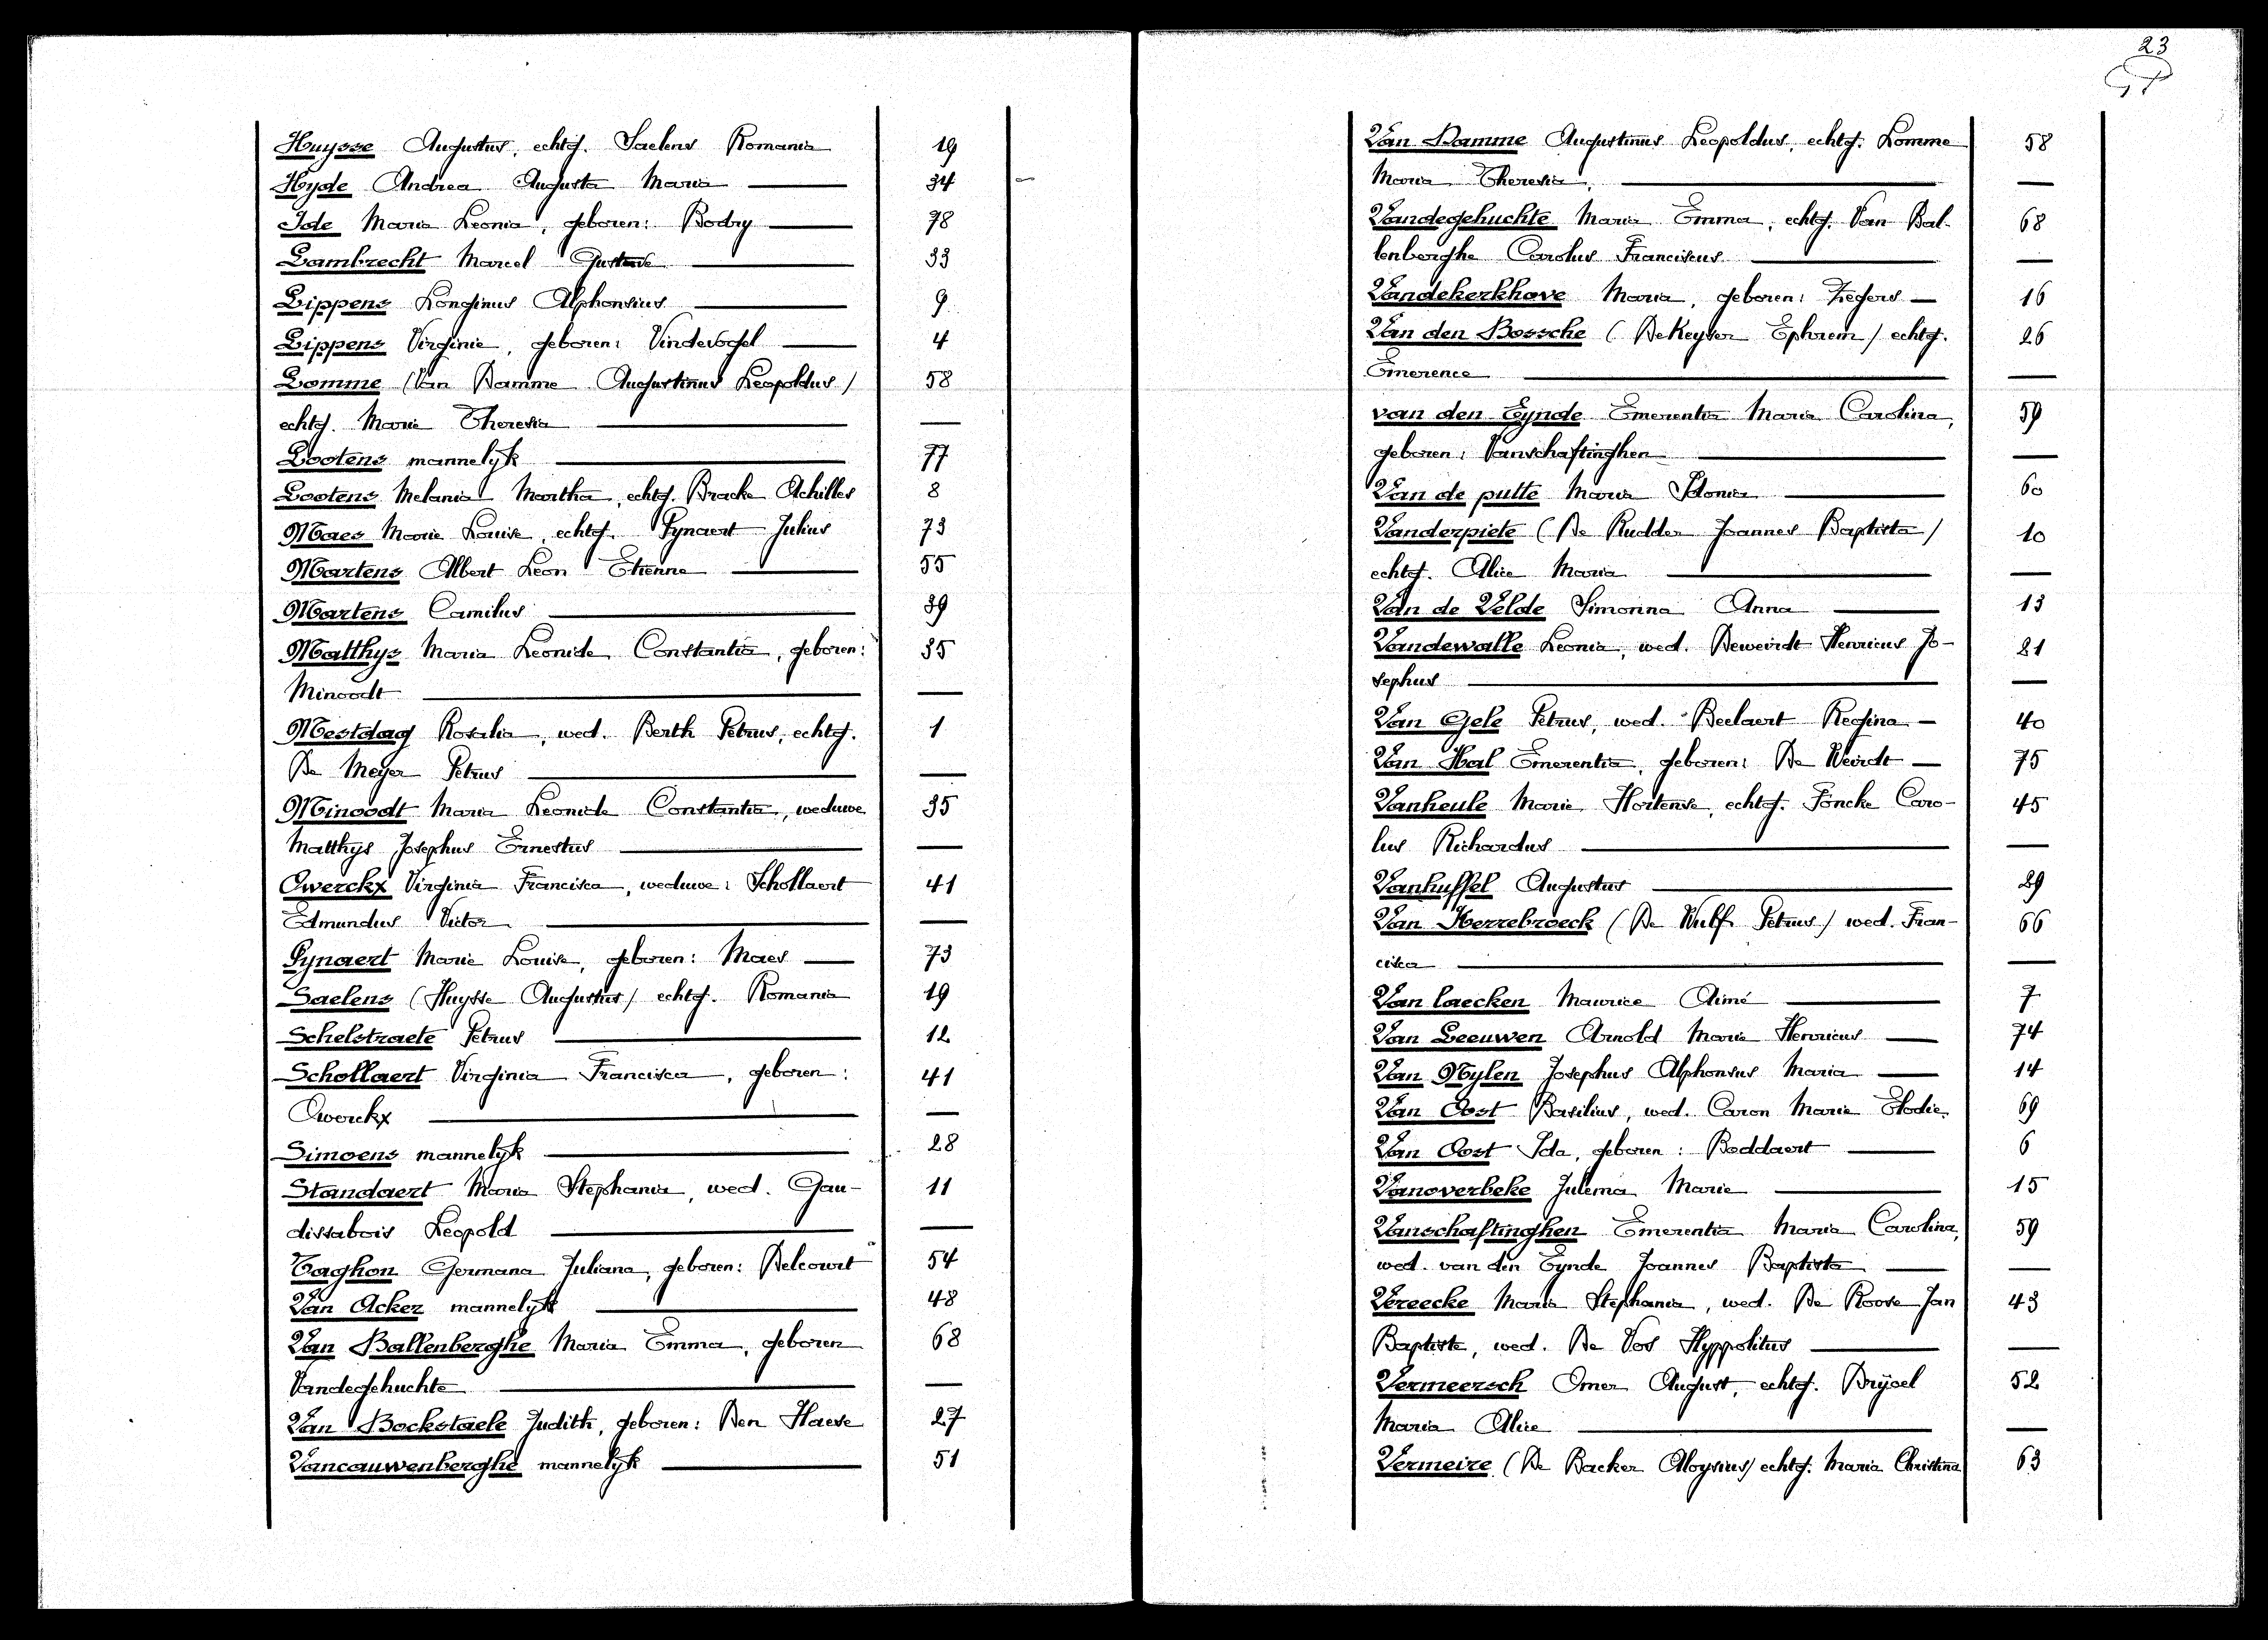 Huysse Augustus, echtg. Saelens Romania 19
Hyde Andrea Augusta Maria 34
Ide Maria Leonia, geboren: Bodry 78
Lambrecht Marcel Gustave 33
Lippens Longinus Alphonsius 9
Lippens Virginie, geboren: Vindevogel 4
Lomme (Van Damme Augustinus Leopoldus) 58
echtg. Marie Theresia —
Lootens mannelyk 77
Lootens Melania Martha, echtg. Bracke Achilles 8
Maes Marie Louise, echtg. Pynaert Julius 73
Martens Albert Leon Etienne 55
Martens Camilus 39
Matthys Maria Leonide Constantia, geboren: 35
Minoodt —
Mestdag Rosalia, wed. Berth Petrus, echtg. 1
De Meyer Petrus —
Minoodt Maria Leonide Constantia, weduwe 35
Matthys Josephus Ernestus —
Owerckx Virginia Francisca, weduwe: Schollaert 41
Edmundus Victor —
Pynaert Marie Louise, geboren: Maes 73
Saelens (Huysse Augustus) echtg. Romania 19
Schelstraete Petrus 12
Schollaert Virginia Francisca, geboren: 41
Owerckx —
Simoens mannelyk 28
Standaert Maria Stephania, wed. Gau- 11
dissabois Leopold —
Taghon Germana Juliana, geboren: Delcourt 54
Van Acker mannelyk 48
Van Ballenberghe Maria Emma, geboren 68
Vandegehuchte —
Van Bockstaele Judith, geboren: Den Haese 27
Vancauwenberghe mannelyk 51
23
Van Damme Augustinus Leopoldus, echtg. Lomme 58
Maria Theresia, —
Vandegehuchte Maria Emma, echtg. Van Bal- 68
lenberghe Carolus Franciscus —
Vandekerkhove Maria, geboren: Zegers 16
Van den Bossche (DeKeyser Ephrem) echtg. 26
Emerence —
van den Eynde Emerentia Maria Carolina, 59
geboren: Vanschaftinghen —
Van de putte Maria Sidonia 60
Vanderpiete (De Rudder Joannes Baptista) 10
echtg. Alice Maria —
Van de Velde Simonna Anna 13
Vandewalle Leonia, wed. Deweirdt Henricus Jo- 21
sephus —
Van Gele Petrus, wed. Beelaert Regina 40
Van Hal Emerentia, geboren: De Weirdt 75
Vanheule Marie Hortense, echtg. Foncke Caro- 45
lus Richardus —
Vanhuffel Augustus 29
Van Herrebroeck (De Wulf Petrus) wed. Fran- 66
cisca —
Van laecken Maurice Aimé 7
Van Leeuwen Arnold Marie Henricus 74
Van Nylen Josephus Alphonsus Maria 14
Van Oost Basilius, wed. Caron Marie Elodie 69
Van Oost Ida, geboren: Boddaert 6
Vanoverbeke Julema Marie 15
Vanschaftinghen Emerentia Maria Carolina, 59
wed. van den Eynde Joannes Baptista —
Vereecke Maria Stephania, wed. De Roose Jan 43
Baptiste, wed. De Vos Hyppolitus —
Vermeersch Omer August, echtg. Bryoel 52
Maria Alice —
Vermeire (De Backer Aloysius) echtg. Maria Christina 63